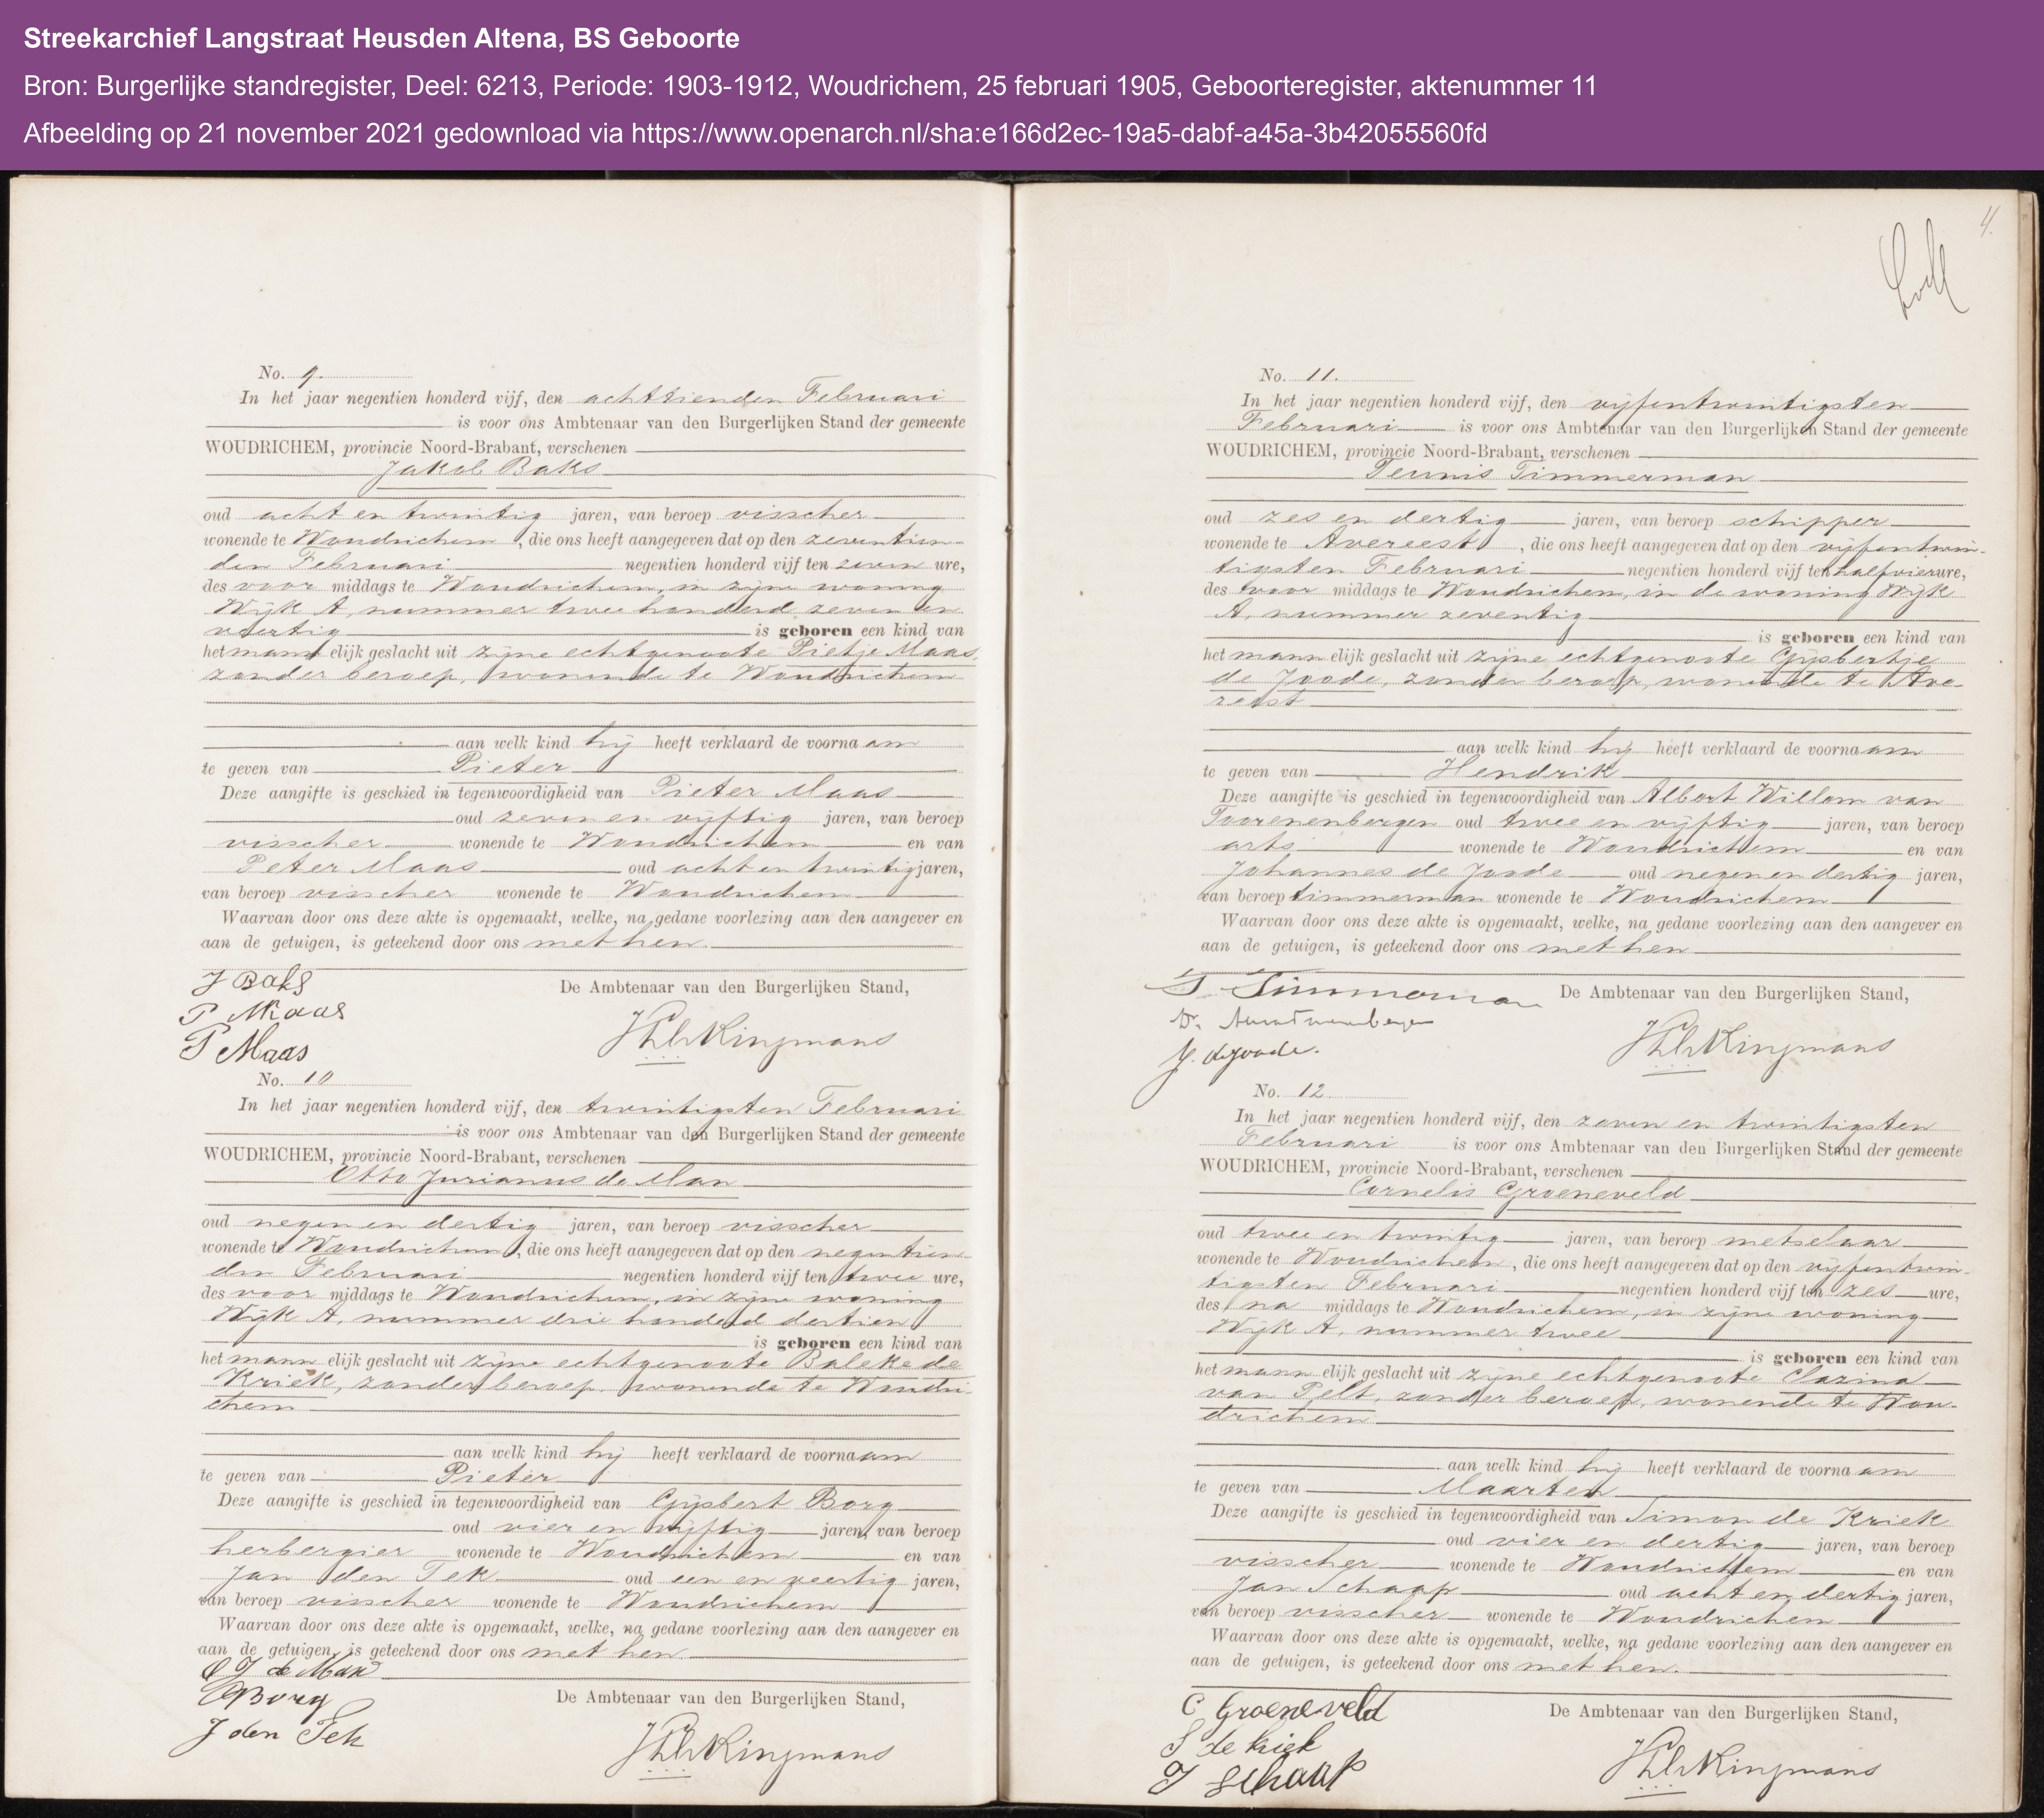 Streekarchief Langstraat Heusden Altena, BS Geboorte
Bron: Burgerlijke standregister, Deel: 6213, Periode: 1903-1912, Woudrichem, 25 februari 1905, Geboorteregister, aktenummer 11
Afbeelding op 21 november 2021 gedownload via https://www.openarch.nl/sha:e166d2ec-19a5-dabf-a45a-3b42055560fd
No. 9.
In het jaar negentien honderd vijf, den achttienden Februari
is voor ons Ambtenaar van den Burgerlijken Stand der gemeente
WOUDRICHEM, provincie Noord-Brabant, verschenen
Jakob Baks
oud acht en twintig jaren, van beroep visscher
wonende te Woudrichem, die ons heeft aangegeven dat op den zeventien-
den Februari negentien honderd vijf ten zeven ure,
des voor middags te Woudrichem, in zijne woning
Wijk A, nummer twee honderd zeven en
veertig is geboren een kind van
het mannelijk geslacht uit zijne echtgenoote Pietje Maas,
zonder beroep, wonende te Woudrichem
aan welk kind hij heeft verklaard de voornaam
te geven van Pieter
Deze aangifte is geschied in tegenwoordigheid van Pieter Maas
oud zeven en vijftig jaren, van beroep
visscher wonende te Woudrichem en van
Peter Maas oud acht en twintig jaren,
van beroep visscher wonende te Woudrichem
Waarvan door ons deze akte is opgemaakt, welke, na gedane voorlezing aan den aangever en
aan de getuigen, is geteekend door ons met hen.
J Baks
De Ambtenaar van den Burgerlijken Stand,
P Maas
P Maas
No. 10
In het jaar negentien honderd vijf, den twintigsten Februari
is voor ons Ambtenaar van den Burgerlijken Stand der gemeente
WOUDRICHEM, provincie Noord-Brabant, verschenen
Otto Jurianus de Man
oud negen en dertig jaren, van beroep visscher
wonende te Woudrichem, die ons heeft aangegeven dat op den negentien-
den Februari negentien honderd vijf ten twee ure,
des voor middags te Woudrichem, in zijne woning
Wijk A, nummer drie honderd dertien
is geboren een kind van
het mannelijk geslacht uit zijne echtgenoote Baleke de
Kriek, zonder beroep, wonende te Woudri-
chem
aan welk kind hij heeft verklaard de voornaam
te geven van Pieter
Deze aangifte is geschied in tegenwoordigheid van Gijsbert Borg
oud vier en vijftig jaren, van beroep
herbergier wonende te Woudrichem en van
Jan den Tek oud een en veertig jaren,
van beroep visscher wonende te Woudrichem
Waarvan door ons deze akte is opgemaakt, welke, na gedane voorlezing aan den aangever en
aan de getuigen, is geteekend door ons met hen
O J de Man
G Borg
De Ambtenaar van den Burgerlijken Stand,
J den Tek
4.
No. 11.
In het jaar negentien honderd vijf, den vijfentwintigsten
Februari is voor ons Ambtenaar van den Burgerlijken Stand der gemeente
WOUDRICHEM, provincie Noord-Brabant, verschenen
Teunis Timmerman
oud zes en dertig jaren, van beroep schipper
wonende te Avereest, die ons heeft aangegeven dat op den vijfentwin-
tigsten Februari negentien honderd vijf ten half vier ure,
des voor middags te Woudrichem, in de woning Wijk
A, nummer zeventig
is geboren een kind van
het mannelijk geslacht uit zijne echtgenoote Gijsbertje
de Joode, zonder beroep, wonende te Ave-
reest
aan welk kind hij heeft verklaard de voornaam
te geven van Hendrik
Deze aangifte is geschied in tegenwoordigheid van Albert Willem van
Toorenenbergen oud twee en vijftig jaren, van beroep
arts wonende te Woudrichem en van
Johannes de Joode oud negen en dertig jaren,
van beroep timmerman wonende te Woudrichem
Waarvan door ons deze akte is opgemaakt, welke, na gedane voorlezing aan den aangever en
aan de getuigen, is geteekend door ons met hen
T. Timmerman
De Ambtenaar van den Burgerlijken Stand,
J. de Joode.
No. 12
In het jaar negentien honderd vijf, den zeven en twintigsten
Februari is voor ons Ambtenaar van den Burgerlijken Stand der gemeente
WOUDRICHEM, provincie Noord-Brabant, verschenen
Cornelis Groeneveld
oud twee en twintig jaren, van beroep metselaar
wonende te Woudrichem, die ons heeft aangegeven dat op den vijfentwin-
tigsten Februari negentien honderd vijf ten zes ure,
des na middags te Woudrichem, in zijne woning
Wijk A, nummer twee
is geboren een kind van
het mannelijk geslacht uit zijne echtgenoote Clazina
van Pelt, zonder beroep, wonende te Wou-
drichem
aan welk kind hij heeft verklaard de voornaam
te geven van Maarten
Deze aangifte is geschied in tegenwoordigheid van Simon de Kriek
oud vier en dertig jaren, van beroep
visscher wonende te Woudrichem en van
Jan Schaap oud acht en dertig jaren,
van beroep visscher wonende te Woudrichem
Waarvan door ons deze akte is opgemaakt, welke, na gedane voorlezing aan den aangever en
aan de getuigen, is geteekend door ons met hen.
C Groeneveld
De Ambtenaar van den Burgerlijken Stand,
S de Kriek
J Schaap